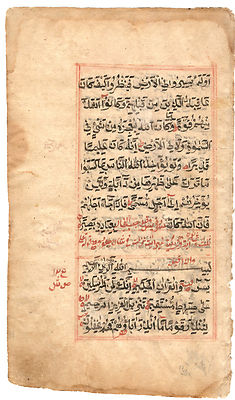 اَوَلَمْ يَسِيرُوا فِي الْاَرْضِ فَيَنْظُرُوا كَيْفَ كَانَ
عَاقِبَةُ الَّذِينَ مِنْ قَبْلِهِمْ وَكَانُوا اَشَدَّ
مِنْهُمْ قُوَّةً وَمَا كَانَ اللهُ لِيُعْجِزَهُ مِنْ شَيْءٍ فِي
السَّمٰوَاتِ وَلَا فِي الْاَرْضِ اِنَّهُ كَانَ عَلِيمًا
قَدِيرًا وَلَوْ يُؤَاخِذُ اللهُ النَّاسَ بِمَا كَسَبُوا
مَا تَرَكَ عَلَى ظَهْرِهَا مِنْ دَابَّةٍ وَلٰكِنْ
يُؤَخِّرُهُمْ اِلَى اَجَلٍ مُسَمًّى فَاِذَا جَاءَ اَجَلُهُمْ
فَاِنَّ اللهَ كَانَ بِعِبَادِهِ بَصِيرًا
بِسْمِ اللهِ الرَّحْمٰنِ الرَّحِيمِ
يٰسٓ وَالْقُرْاٰنِ الْحَكِيمِ اِنَّكَ لَمِنَ الْمُرْسَلِينَ
عَلَى صِرَاطٍ مُسْتَقِيمٍ تَنْزِيلَ الْعَزِيزِ الرَّحِيمِ
لِتُنْذِرَ قَوْمًا مَا اُنْذِرَ اٰبَاؤُهُمْ فَهُمْ غَافِلُونَ